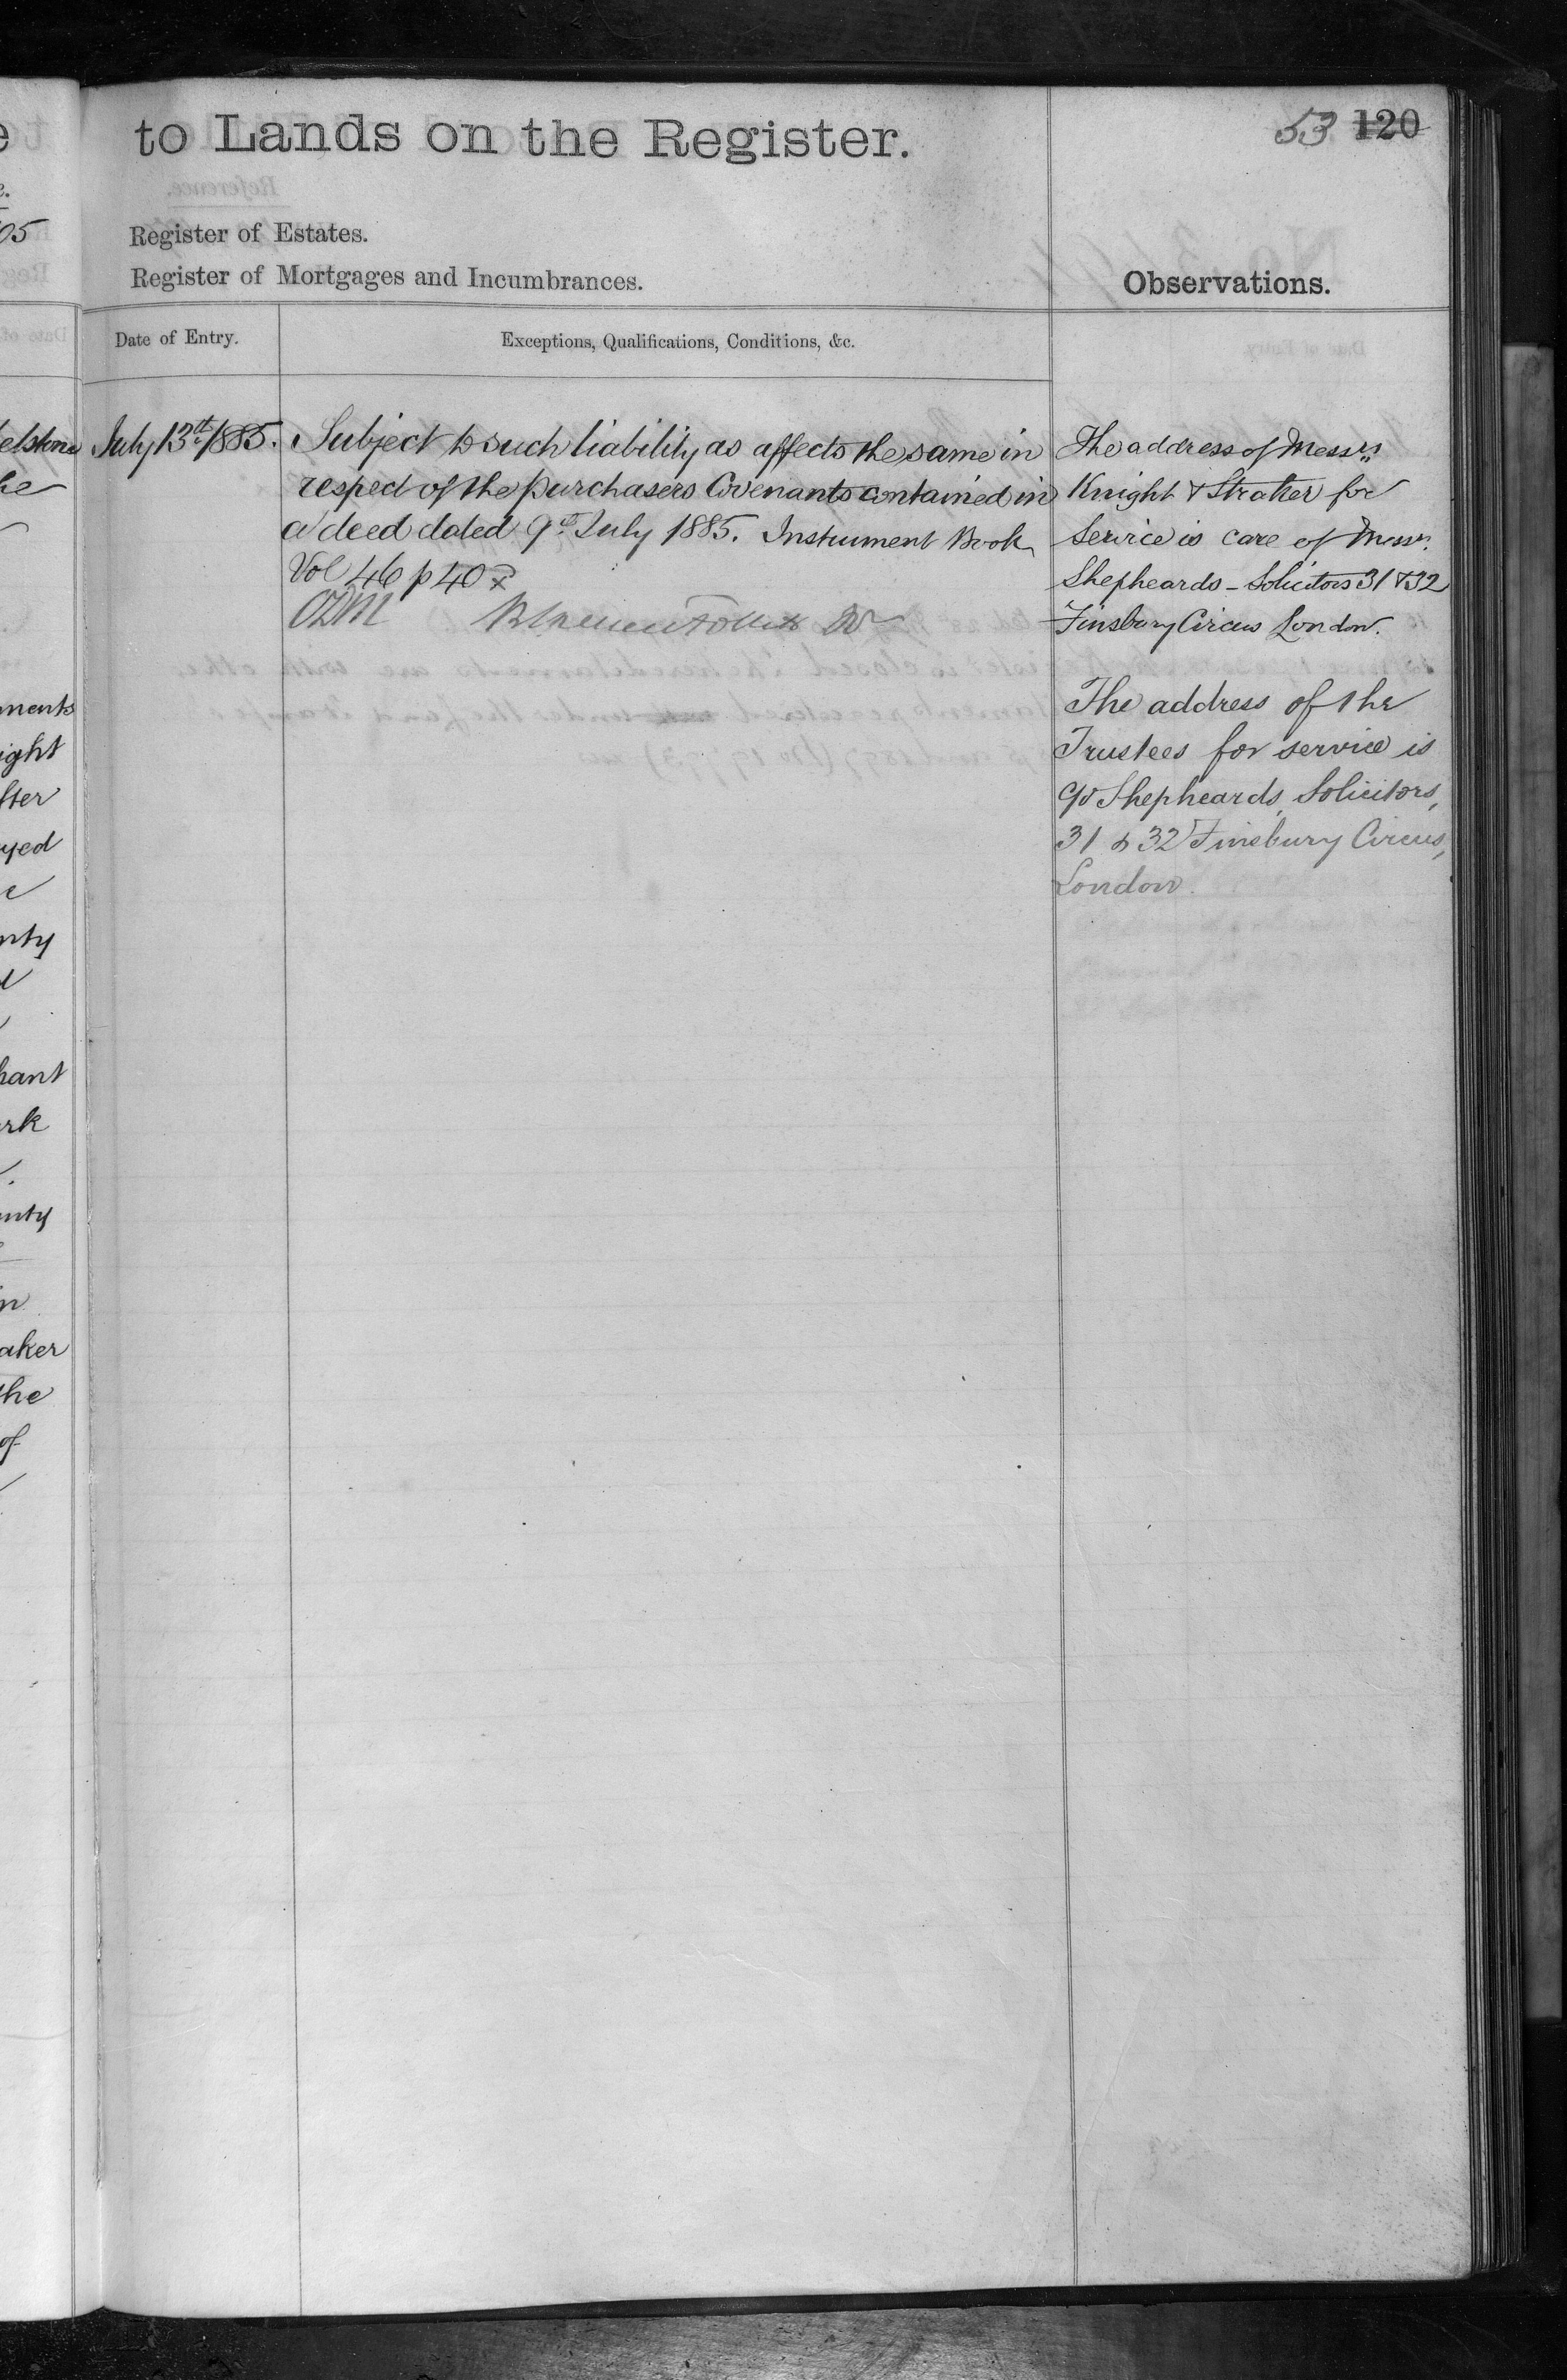 to Lands on the Register.
53 120
Register of Estates.
Register of Mortgages and Incumbrances.
Observations.
Date of Entry.
Exceptions, Qualifications, Conditions, &c.
July 13th 1885.
Subject to such liability as affects the same in
respect of the purchasers Covenants contained in
a deed dated 9th July 1885. Instrument Book
Vol 46 p 40
The address of Messrs
Knight & Straker for
Service is care of Messrs.
Shepheards - Solicitors 31 & 32
Finsbury Circus London.
The address of the
Trustees for service is
c/o Shepheards, Solicitors,
31 & 32 Finsbury Circus,
London.
05
he
ments
ight
fter
yed
nty
hant
rk
unty
in
aker
the
of